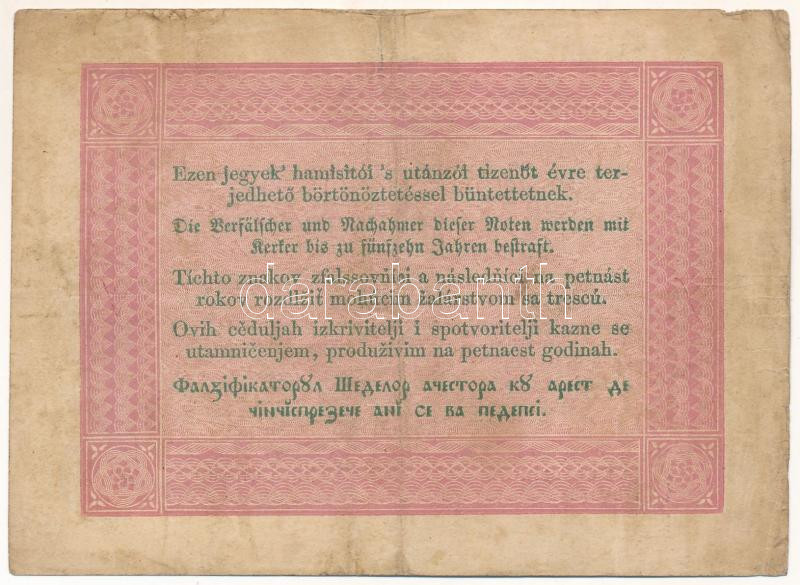 Ezen jegyek' hamisítói 's utánzói tizenöt évre ter-
jedhető börtönöztetéssel büntettetnek.
Die Verfälscher und Nachahmer dieser Noten werden mit
Kerker bis zu fünfzehn Jahren bestraft.
Tíchto znakov zfalssovňící a následňíci na petnást
rokov rozdlžiť mohúcím žalárstvom sa trescú.
darabanth
Ovih cěduljah izkrivitelji i spotvoritelji kazne se
utamničenjem, produživim na petnaest godinah.
Фалꙁіфікаторꙋл Шеделор ачестора кꙋ арест де
чінчіспреꙁече ані се ва педепсі.